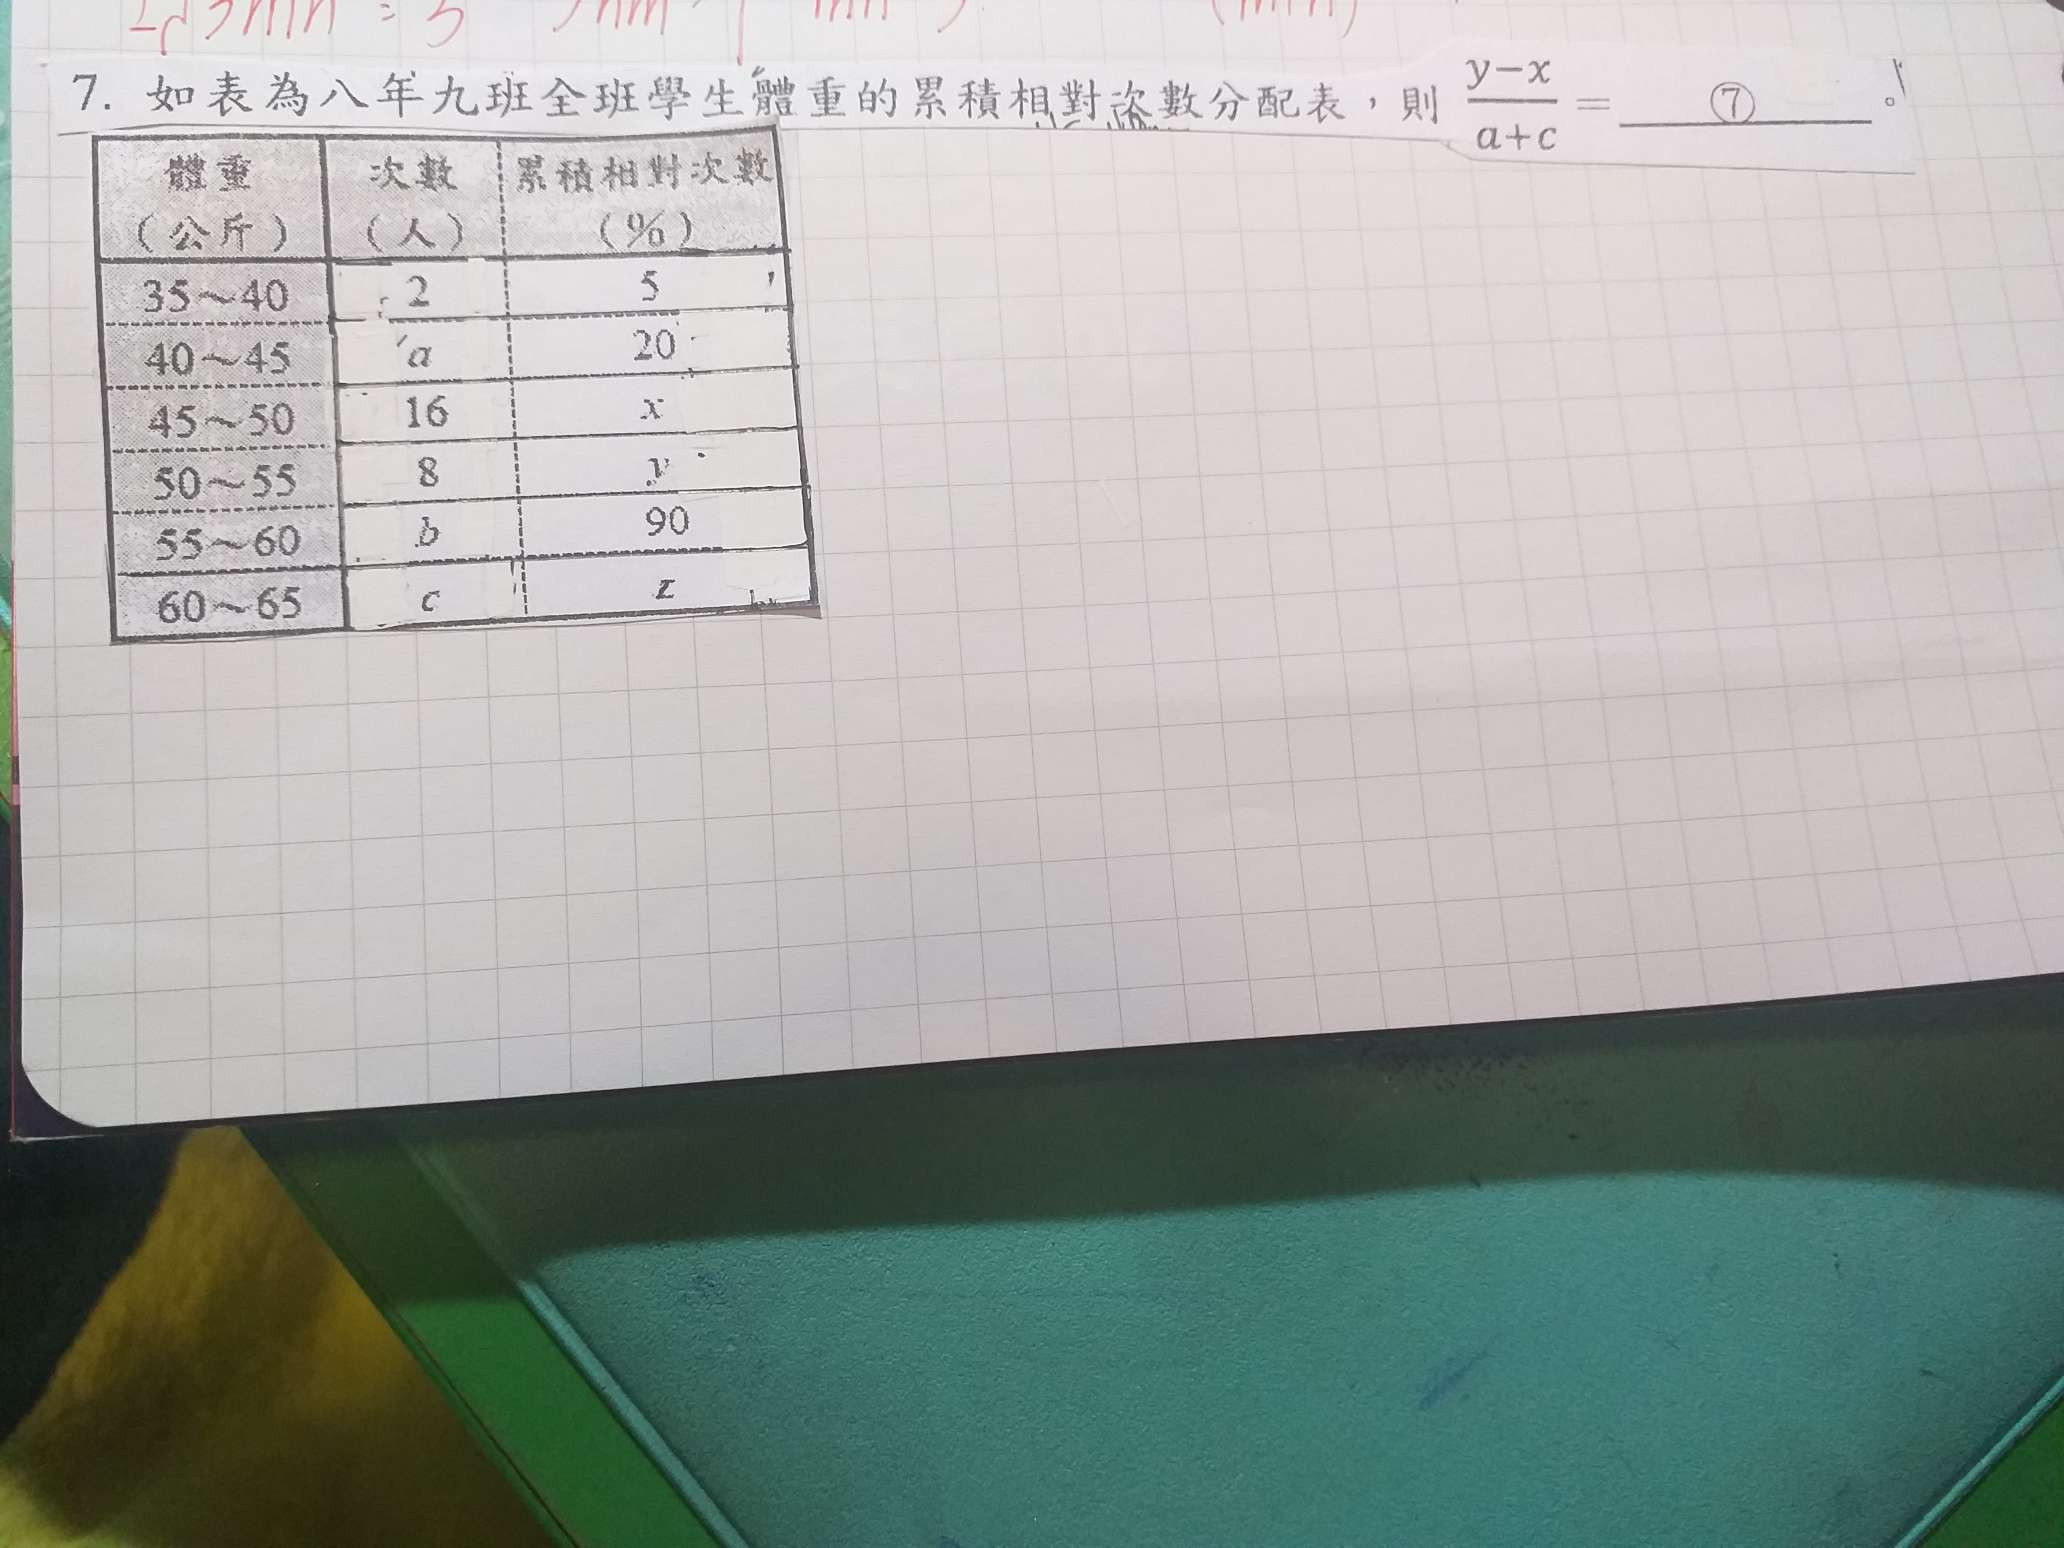 7. 如表為八年九班全班學生體重的累積相對次數分配表，則 (y−x)/(a+c) = ⑦ 。
體重（公斤） 次數（人） 累積相對次數（%）
35～40 2 5
40～45 a 20
45～50 16 x
50～55 8 y
55～60 b 90
60～65 c z